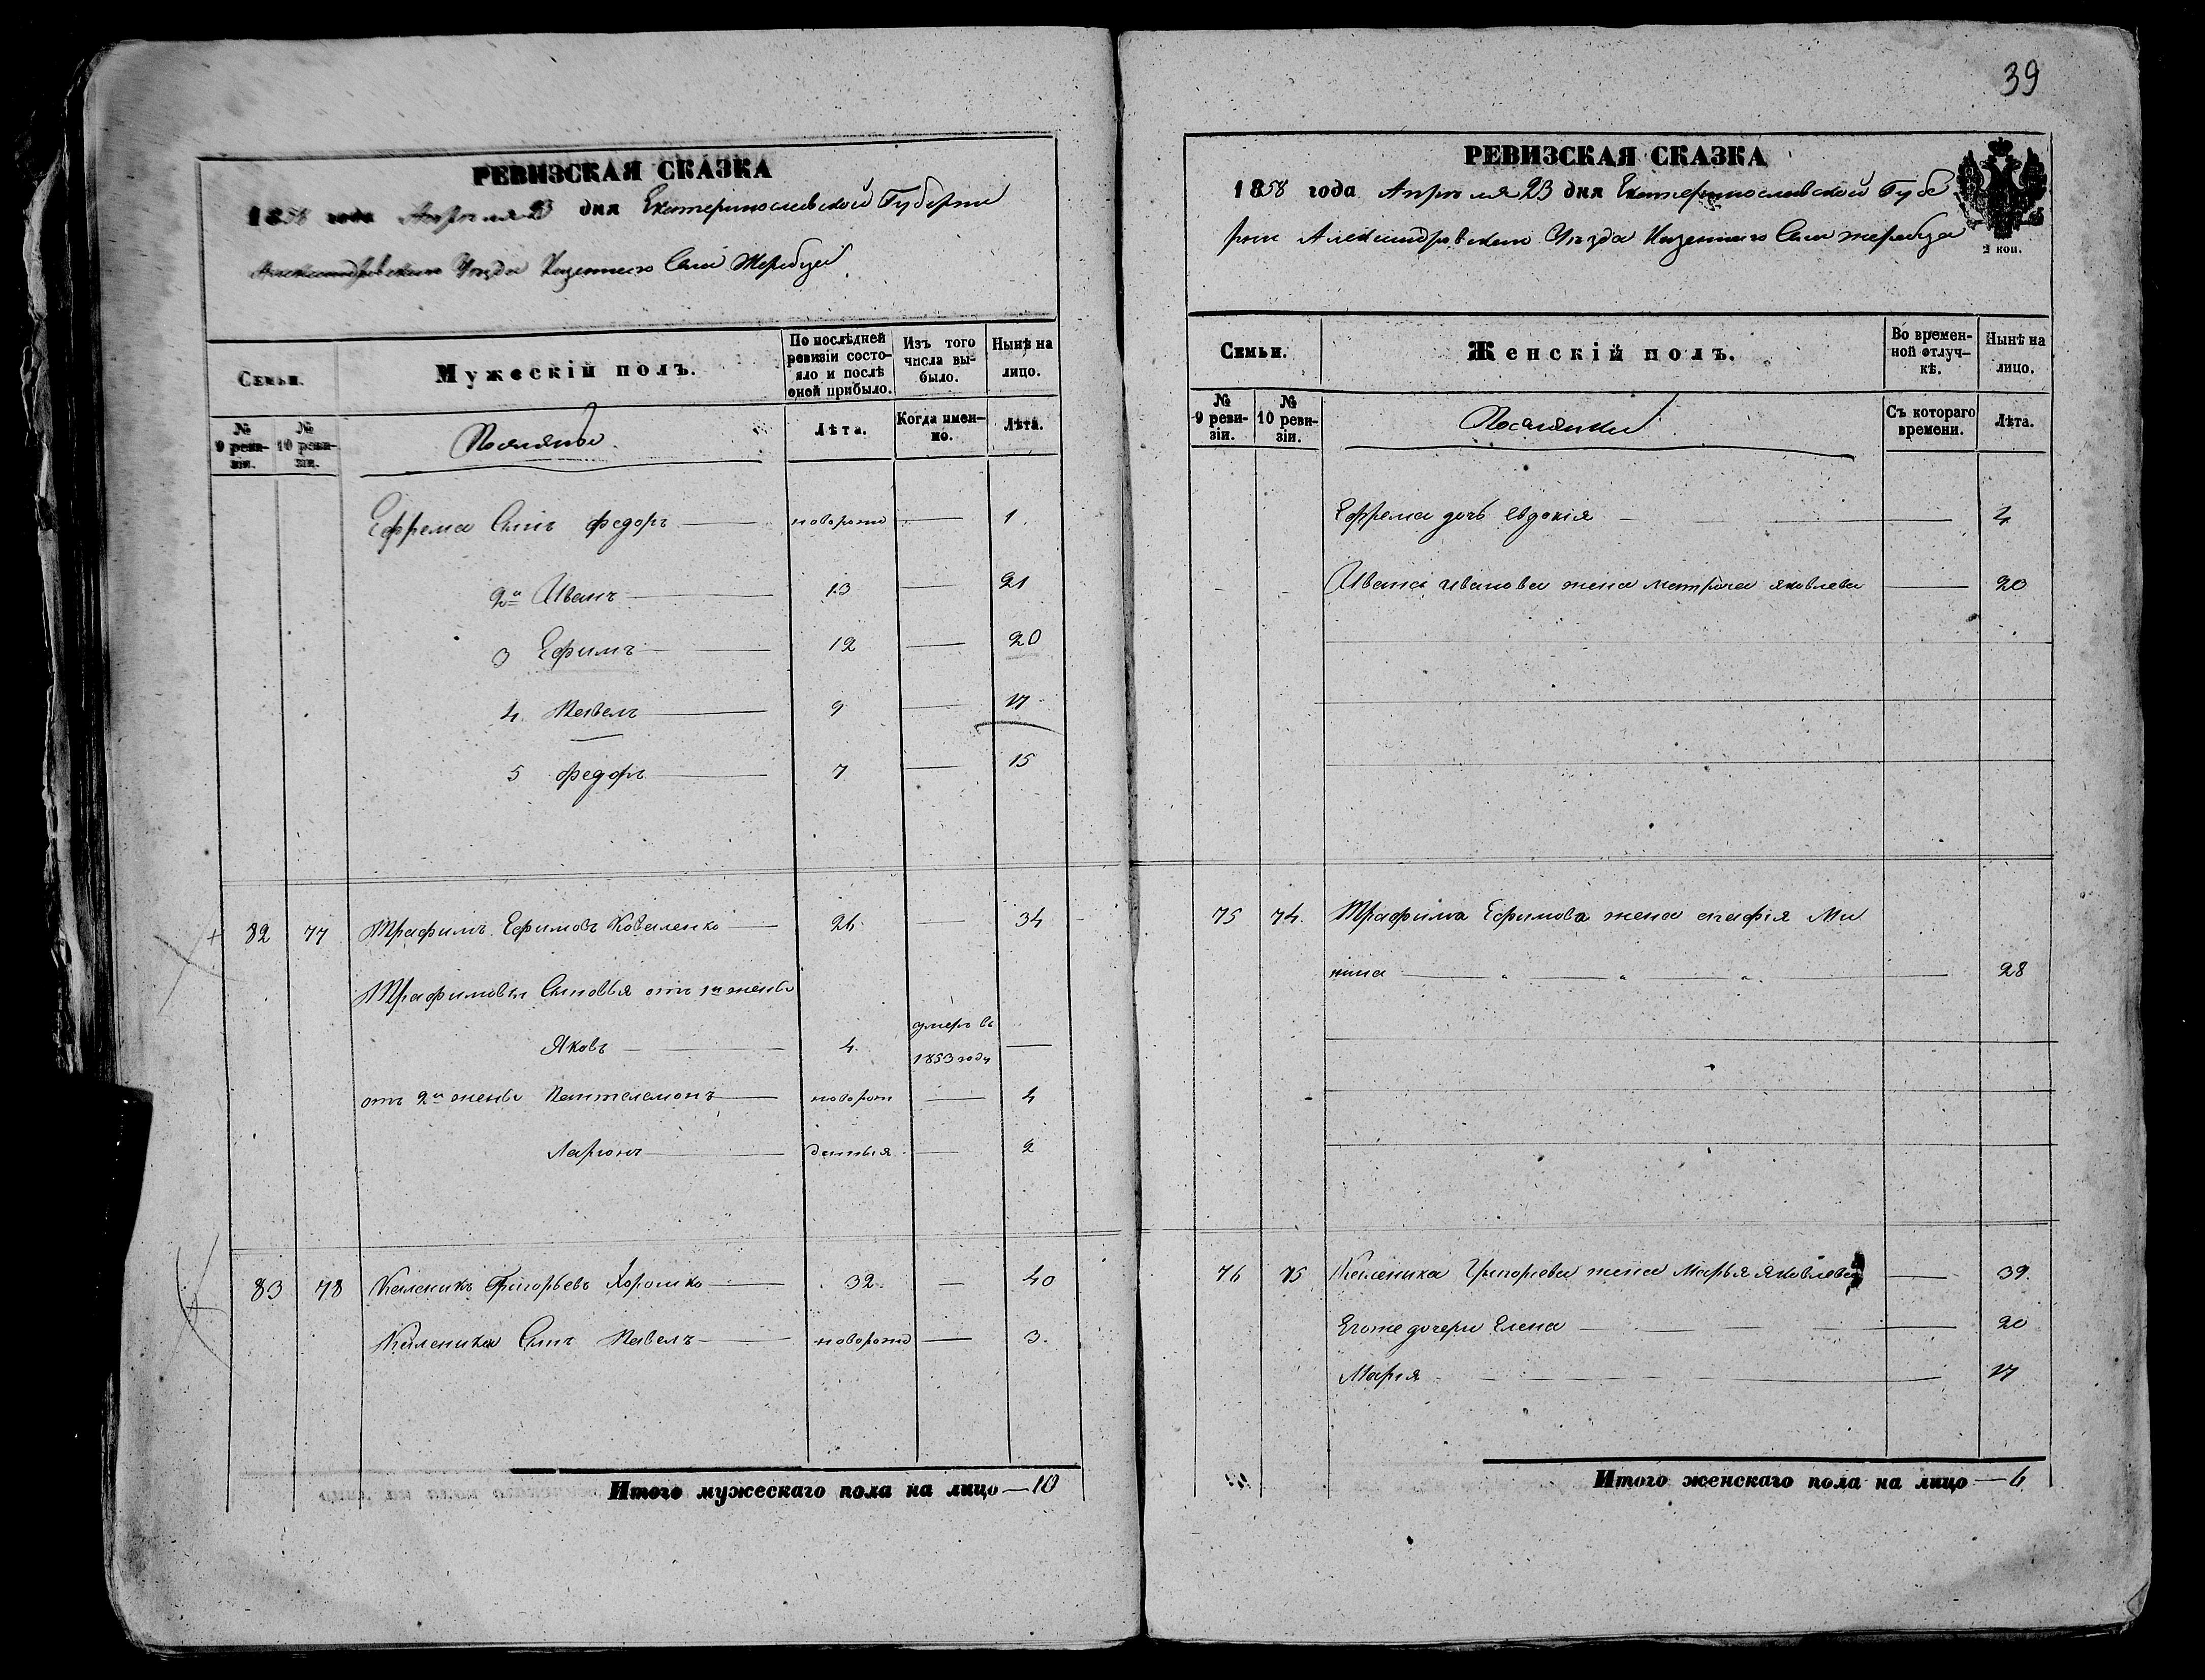 РЕВИЗСКАЯ СКАЗКА
1858 года Апреля 23 дня Екатеринославской Губернии
Александровского Уѣзда Казенного Села Жеребца
Семьи.
Мужескій полъ.
По послѣдней ревизіи состояло и послѣ оной прибыло.
Изъ того числа выбыло.
Нынѣ на лицо.
№ 9 ревизіи.
№ 10 ревизіи.
Поселяне
Лѣта.
Когда именно.
Лѣта.
Ефрема Сынъ Федоръ — новорожд — 1
2й Иванъ — 13 — 21
3 Ефимъ — 12 — 20
4. Павелъ — 9 — 17
5 Федоръ — 7 — 15
82 77 Трафимъ Ефимовъ Коваленко — 26 — 34
Трафимовы Сыновья отъ 1й жены
Яковъ — 4 умеръ въ 1853 году —
отъ 2й жены Пантелемонъ — новорож — 4
Ларионъ — денныя — 2
83 78 Каленикъ Григорьевъ Хорошко — 32 — 40
Каленика Сынъ Павелъ — новорожд — 3.
Итого мужескаго пола на лицо — 10
39
РЕВИЗСКАЯ СКАЗКА
1858 года Апреля 23 дня Екатеринославской Губе
рнии Александровского Уѣзда Казенного Села жеребца
2 коп.
Семьи.
Женскій полъ.
Во временной отлучкѣ.
Нынѣ на лицо.
№ 9 ревизіи.
№ 10 ревизіи.
Поселянки
Съ котораго времени.
Лѣта.
Ефрема дочь Евдокія — 4
Ивана Иванова жена Матрона Яковлева — 20
75 74. Трафима Ефимова жена агафія Ми
нина — 28
76 75 Каленика Григорьева жена Марья Яковлева — 39.
Егоже дочери Елена — 20
Марія — 17
Итого женскаго пола на лицо — 6